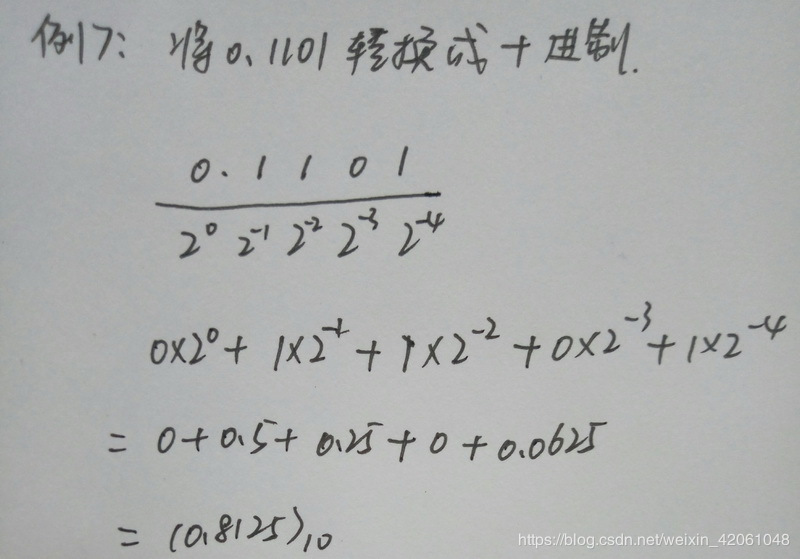 例17: 将0.1101转换成十进制.
0. 1 1 0 1
2⁰ 2⁻¹ 2⁻² 2⁻³ 2⁻⁴
0×2⁰+ 1×2⁻¹ + 1×2⁻² + 0×2⁻³ + 1×2⁻⁴
= 0+0.5+ 0.25+0+0.0625
= (0.8125)₁₀
https://blog.csdn.net/weixin_42061048